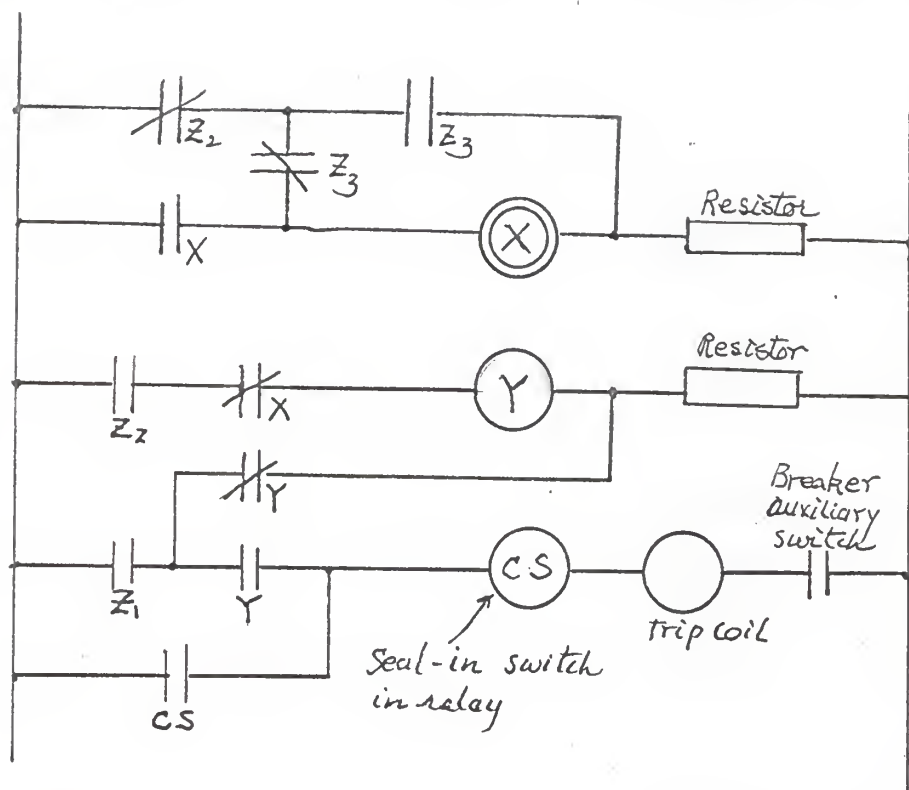 Z2
Z3
Z3
X
X
Resistor
Z2
X
Y
Resistor
Y
Breaker
auxiliary
switch
Z1
Y
CS
Trip coil
Seal-in switch
in relay
CS